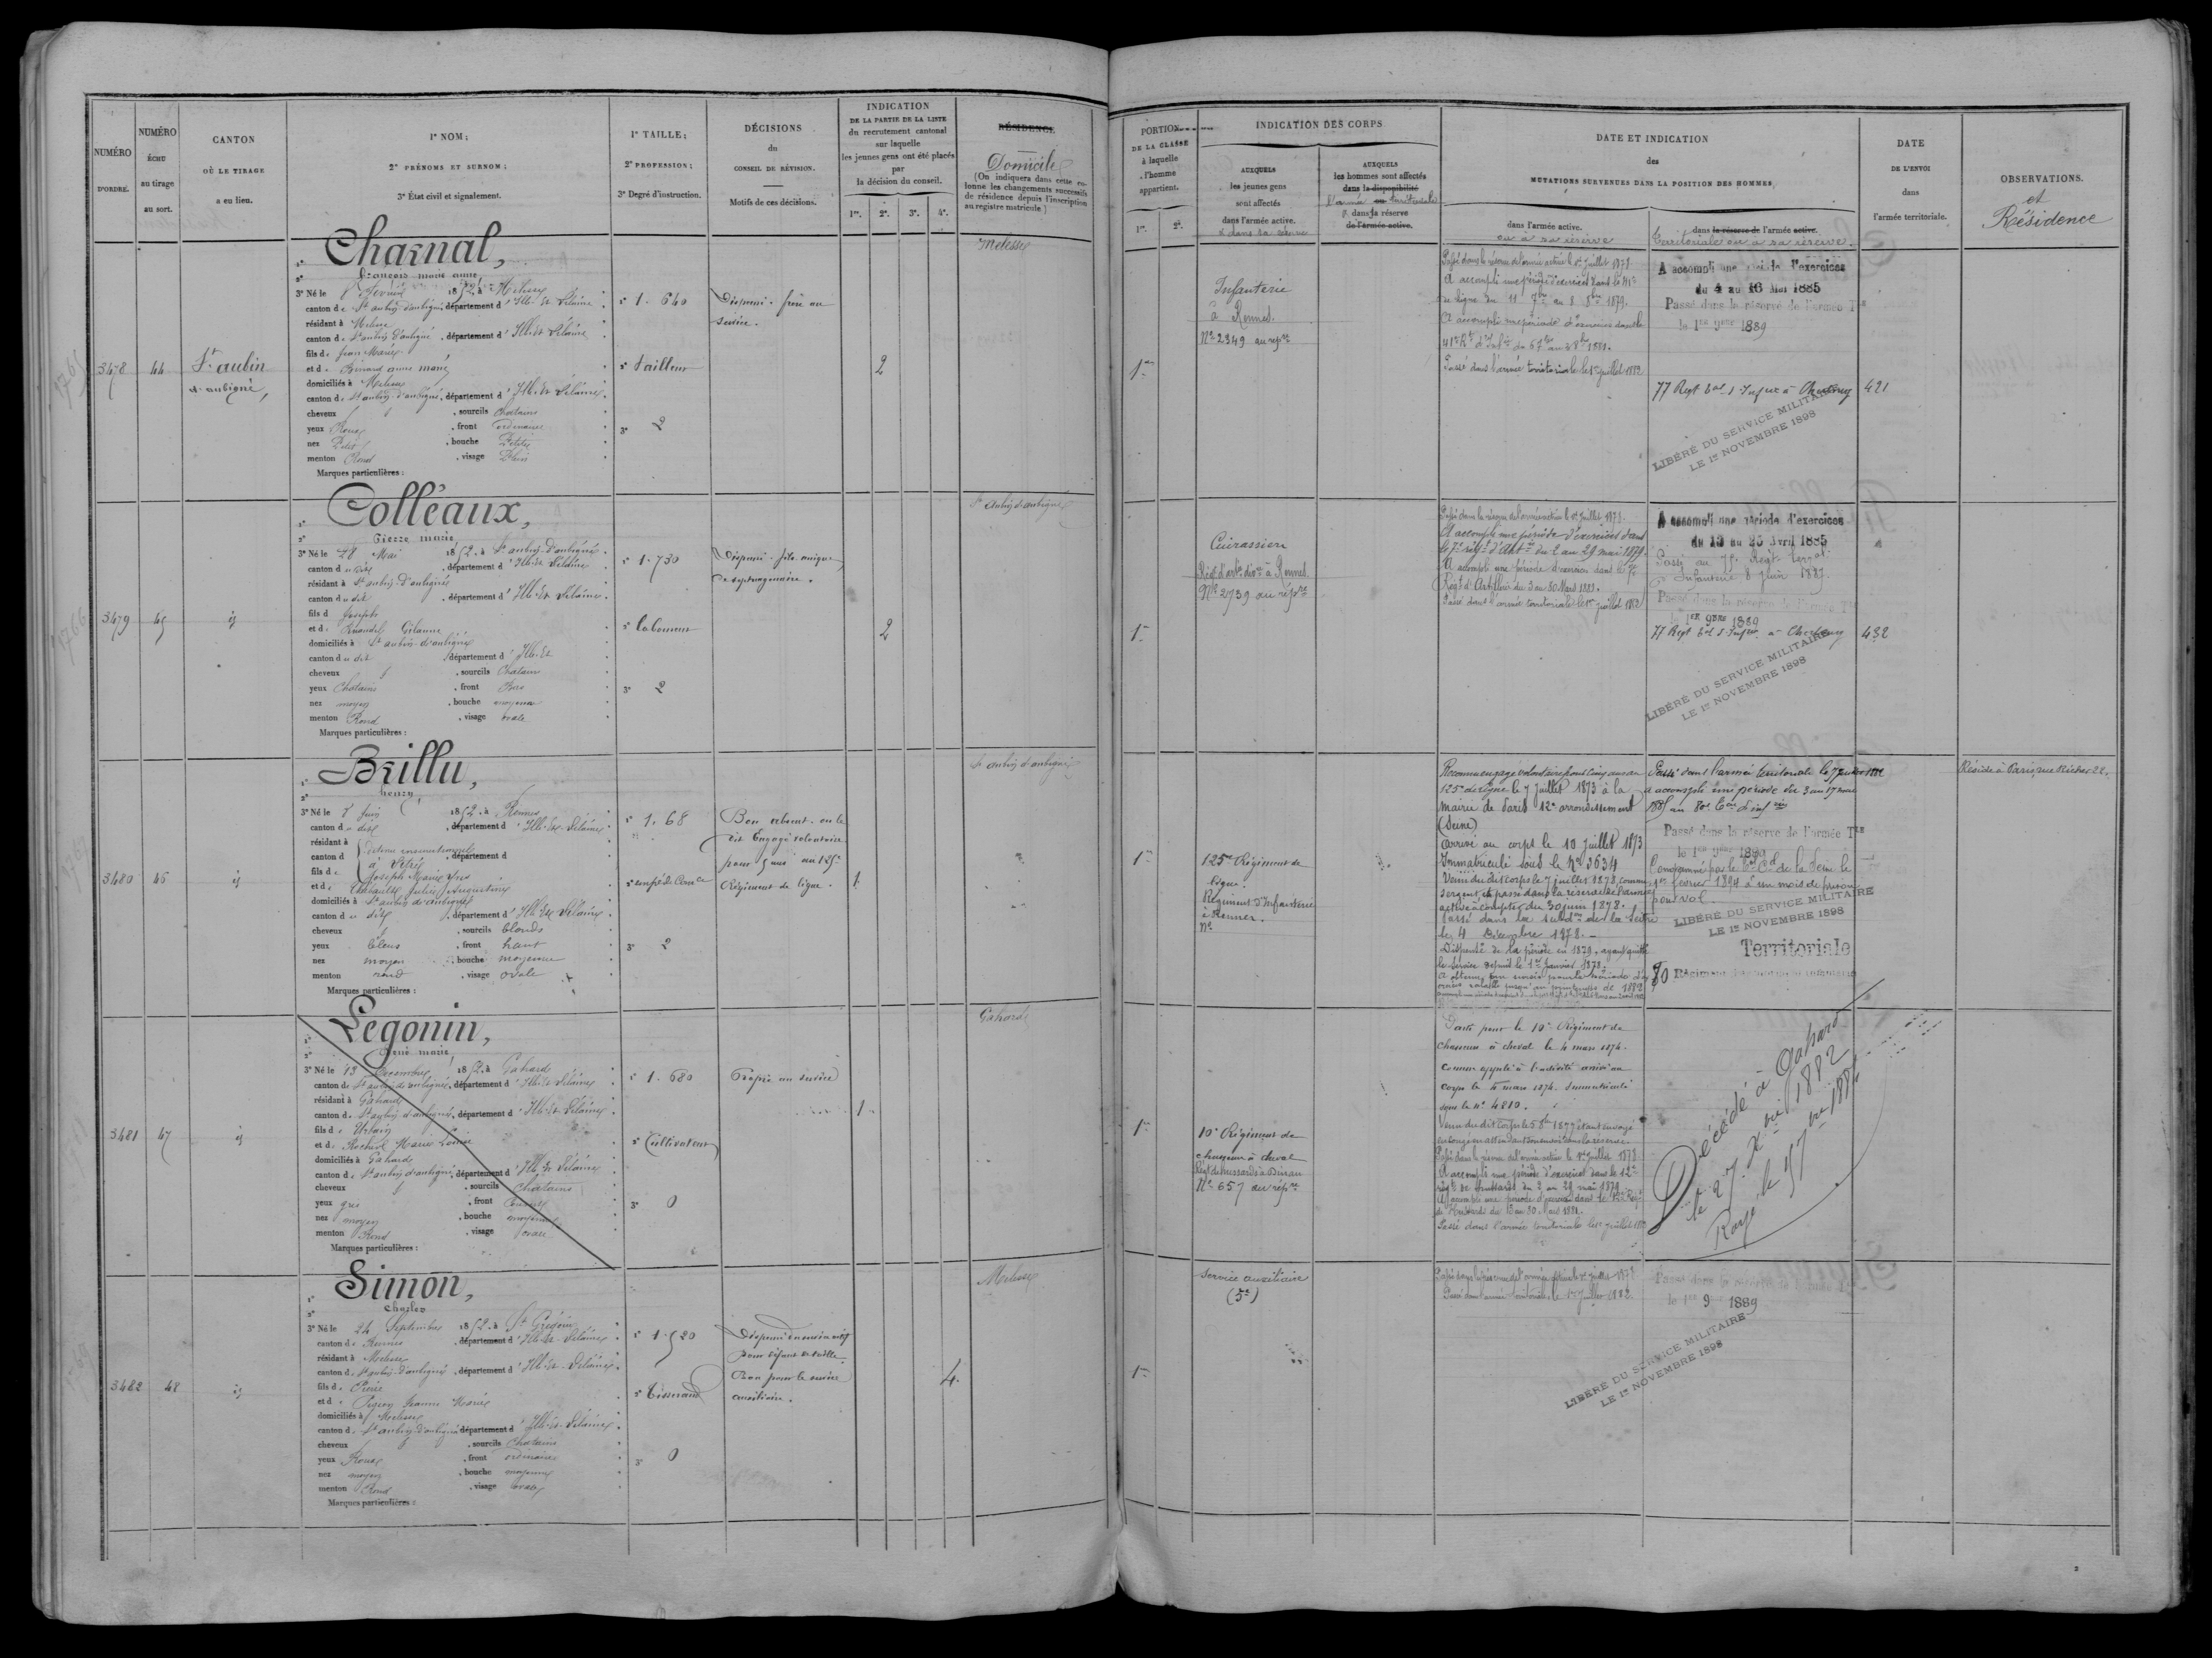 NUMÉRO
D'ORDRE.
NUMÉRO
ÉCHU
au tirage
au sort.
CANTON
OÙ LE TIRAGE
a eu lieu.
1° NOM;
2° PRÉNOMS ET SURNOM;
3° État civil et signalement.
1° TAILLE;
2° PROFESSION;
3° Degré d'instruction.
DÉCISIONS
du
CONSEIL DE RÉVISION.
Motifs de ces décisions.
INDICATION
DE LA PARTIE DE LA LISTE
du recrutement cantonal
sur laquelle
les jeunes gens ont été placés
par
la décision du conseil.
1re. 2e. 3e. 4e.
RÉSIDENCE
Domicile
(On indiquera dans cette co-
lonne les changements successifs
de résidence depuis l'inscription
au registre matricule.)
PORTION
DE LA CLASSE
à laquelle
l'homme
appartient.
1re. 2e.
INDICATION DES CORPS
AUXQUELS
les jeunes gens
sont affectés
dans l'armée active.
& dans sa réserve
AUXQUELS
les hommes sont affectés
dans la disponibilité
l'armée ou territoriale
& dans la réserve
de l'armée active.
DATE ET INDICATION
des
MUTATIONS SURVENUES DANS LA POSITION DES HOMMES
dans l'armée active.
ou à sa réserve
dans la réserve de l'armée active.
territoriale ou à sa réserve.
DATE
DE L'ENVOI
dans
l'armée territoriale.
OBSERVATIONS.
et
Résidence
3478
44
St aubin
d'aubigné,
1° Charnal,
2° françois marie anne,
3° Né le 8 février 1852, à Melesse
canton de St aubin-d'aubigné, département d'Ille-et-Vilaine.
résidant à Melesse
canton de St aubin d'aubigné, département d'Ille-et-Vilaine
fils de Jean Marie
et de Binard anne marie
domiciliés à Melesse
canton de St aubin-d'aubigné, département d'Ille-et-Vilaine.
cheveux , sourcils Chatains
yeux Roux , front ordinaire
nez Petit , bouche Petite
menton Rond , visage Plein
Marques particulières :
1° 1. 640
2° tailleur
3° 2
Dispensé. frère au
service.
2
Melesse
1re
Infanterie
à Rennes.
No 2349 au répre
Passé dans la réserve de l'armée active le 1er juillet 1878
A accompli une période d'exercices dans le 41e
de ligne du 11 7bre au 8 8bre 1879.
A accompli une période d'exercices dans le
41e Rt d'Infie du 6 7bre au 3 8bre 1881.
Passé dans l'armée territoriale le 1er juillet 1882
A accompli une période d'exercices
du 4 au 16 Mai 1885
Passé dans la réserve de l'armée Tle
le 1er 9bre 1889
77 Regt tal d'Infrie à Cherbourg
421
LIBÉRÉ DU SERVICE MILITAIRE
LE 1er NOVEMBRE 1898
3479
45
id
1° Colléaux,
2° Pierre marie
3° Né le 28 Mai 1852, à St aubin-d'aubigné.
canton du dit , département d'Ille-et-Vilaine
résidant à St aubin-d'aubigné
canton du dit , département d'Ille-et-Vilaine.
fils d Joseph
et de
domiciliés à St aubin-d'aubigné
canton du dit département d'Ille-et
cheveux , sourcils Chatain
yeux Chatains , front
nez moyen , bouche moyenne
menton Rond , visage ovale
Marques particulières :
1° 1.730
2° laboureur
3° 2
Dispensé. fils unique
de septuagénaire.
2
St aubin d'aubigné
1re
Cuirassiers
Régt d'artie divre à Rennes
No 2739 au répre
Passé dans la réserve de l'armée active le 1er Juillet 1878.
A accompli une période d'exercices dans
le 7e régt d'Artie du 2 au 29 mai 1879.
A accompli une période d'exercices dans le 7e
Régt d'Artillerie du 3 au 30 Mars 1882.
Passé dans l'armée territoriale le 1er juillet 1882
A accompli une période d'exercices
du 13 au 25 Avril 1885
Passé au 75e Régt terral
d'Infanterie 8 Juin 1887.
Passé dans la réserve de l'armée Tle
le 1er 9bre 1889
77 Regt tal d'Infrie à Cherbourg
432
LIBÉRÉ DU SERVICE MILITAIRE
LE 1er NOVEMBRE 1898
3480
46
id
1° Brillu,
2° henry,
3° Né le 8 Juin 1852, à Rennes
canton du dit , département d'Ille-et-Vilaine
résidant à
canton d à Vitré , département d
fils de Joseph Marie Yves
et de Thébault Julie Augustine
domiciliés à St aubin d'aubigné
canton du dit , département d'Ille-et-Vilaine
cheveux , sourcils blonds
yeux bleus , front haut
nez moyen , bouche moyenne
menton rond , visage ovale
Marques particulières :
1° 1. 68
2° empé de Comce
3° 2
Bon absent. on le
dit Engagé volontaire
pour 5 ans au 125e
Régiment de ligne.
1.
St aubin d'aubigné
1re
125e Régiment de
ligne.
Régiment d'Infanterie
à Rennes.
No
Reconnu engagé volontaire pour Cinq ans au
125e de ligne le 7 juillet 1873 à la
mairie de Paris 12e arrondissement
(Seine)
Arrivé au corps le 10 juillet 1873
Immatriculé sous le No 3634
Venu du dit corps le 7 juillet 1878, comme
Sergent, et passé dans la réserve de l'armée
active à compter du 30 juin 1878.
Passé dans la subdon de la Seine
le 4 Décembre 1878.
Dispensé de la période en 1879, ayant quitté
le service depuis le 1er Janvier 1878.
Passé dans l'armée territoriale le 7 juillet
a accompli une période du 3 au 17 mai
1885 au 80e tal d'infrie
Passé dans la réserve de l'armée Tle
le 1er 9bre 1889
Condamné par le de la Seine le
1er février 1894 à un mois de prison
pour vol.
LIBÉRÉ DU SERVICE MILITAIRE
LE 1er NOVEMBRE 1898
Territoriale
80 Régiment
Réside à Paris, rue Richer 22.
3481
47
id
1° Legonin,
2° René marie,
3° Né le 13 Décembre 1852, à Gahard
canton de St aubin d'aubigné, département d'Ille-et-Vilaine
résidant à Gahard
canton de St aubin d'aubigné, département d'Ille-et-Vilaine.
fils de Urbain
et de Marie Louise
domiciliés à Gahard
canton de St aubin d'aubigné, département d'Ille-et-Vilaine
cheveux , sourcils Chatains
yeux gris , front
nez moyen , bouche moyenne
menton Rond , visage ovale
Marques particulières :
1° 1. 680
2° Cultivateur
3° 0
Propre au service
1.
Gahard
1re
10e Régiment de
chasseurs à cheval
Régt de hussards à Dinan
No 657 au répre
Parti pour le 10e Régiment de
Chasseurs à cheval le 4 mars 1874.
Comme appelé à l'activité arrivé au
Corps le 4 mars 1874. Immatriculé
sous le no 4810.
Venu du dit Corps le 5 8bre 1877 étant envoyé
en congé en attendant son envoi dans la réserve.
Passé dans la réserve de l'armée active le 1er Juillet 1878
A accompli une période d'exercices dans le 12e
régt de hussards du 2 au 29 mai 1879
A accompli une période d'exercices dans le 12e Régt
de Hussards du 3 au 30 Mars 1881.
Passé dans l'armée territoriale le 1er juillet 1882
Décédé à Gahard
le 27 Xbre 1882
Rayé le 17 1884
3482
48
id
1° Simon,
2° Charles
3° Né le 24 Septembre 1852, à St Grégoire
canton de Rennes , département d'Ille-et-Vilaine
résidant à Melesse
canton de St aubin-d'aubigné, département d'Ille-et-Vilaine.
fils de Pierre
et de Jeanne Marie
domiciliés à Melesse
canton de St aubin-d'aubigné, département d'Ille-et-Vilaine.
cheveux , sourcils Chatains
yeux Roux , front ordinaire
nez moyen , bouche moyenne
menton Rond , visage ovale
Marques particulières :
1° 1.520
2° tisserand
3° 0
Dispensé du service actif
pour défaut de taille.
Bon pour le service
auxiliaire.
4.
Melesse
1re
Service auxiliaire
(5e)
Passé dans la réserve de l'armée active le 1er juillet 1878
Passé dans l'armée territoriale le 1er Juillet 1882.
Passé dans la réserve de l'armée Tle
le 1er 9 1889
LIBÉRÉ DU SERVICE MILITAIRE
LE 1er NOVEMBRE 1898
2